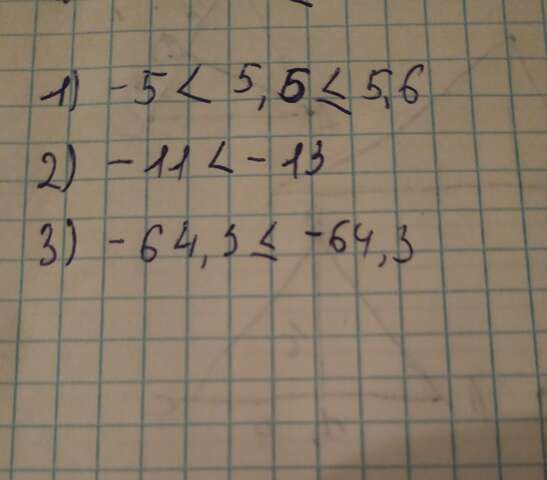 1) -5 < 5,5 ≤ 5,6
2) -11 < -13
3) -64,3 ≤ -64,3